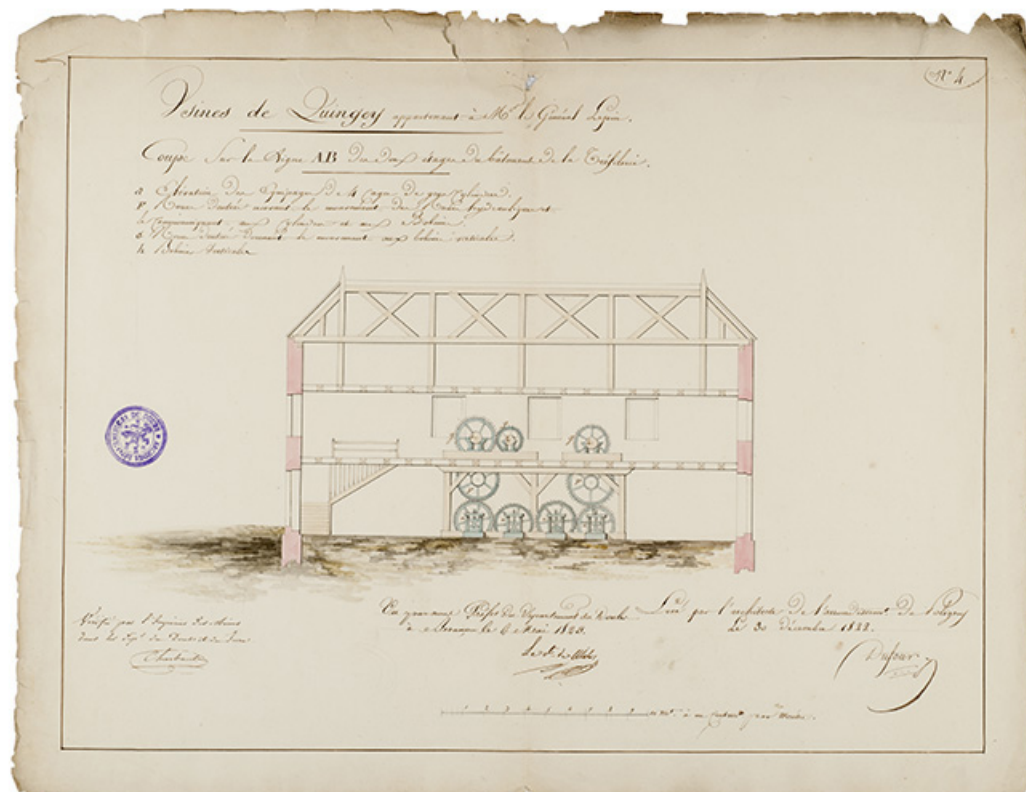 N° 4
Usines de Quingey appartenant à Mr. le Général Lepin.
Coupe sur la ligne AB des deux étages du bâtiment de la Tréfilerie.
a Elévation des Equipages de 4 cages de gros cylindres
Roue dentée le mouvement de la Roue hydraulique et
le aux cylindres et aux Bobines.
Roue dentée donnant le mouvement aux bobines verticales.
Bobines verticales
Vérifié par l'Ingénieur des Mines
dans les Dépts. du Doubs et du Jura
Vu par nous Préfet du Département du Doubs
à Besançon le 6 Mai 1823.
Levé par l'architecte de l'arrondissement de Poligny
Le 30 décembre 1822.
Dufour
1 2 3 4 5 6 7 8 9 10 à un Centimt. par mètre.